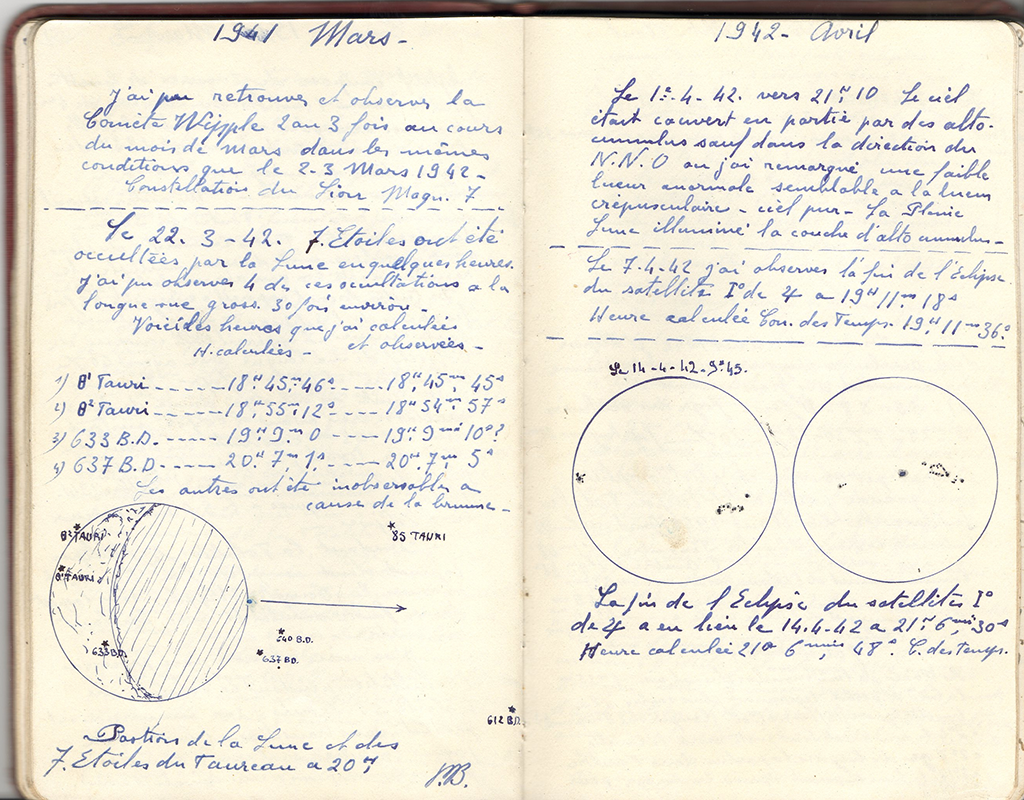 1941 Mars-
J'ai pu retrouver et observer la
Comète Wipple 2 au 3 fois au cours
du mois de Mars dans les mêmes
conditions que le 2-3 Mars 1942-
Constellation du Lion Magn. 7
Le 22. 3-42. 7. Etoiles ont été
occultées par la Lune en quelques heures.
J'ai pu observer 4 de ces occultations a la
longue-vue gross. 30 fois environ.
Voici les heures que j'ai calculées
et observées-
H. calculées-
1) θ¹ Tauri ---- 18ᴴ 45ᵐ 46ˢ ---- 18ᴴ 45ᵐ 45ˢ
2) θ² Tauri ---- 18ᴴ 55ᵐ 12ˢ ---- 18ᴴ 54ᵐ 57ˢ
3) 633 B.D. ---- 19ᴴ 9ᵐ 0 ---- 19ᴴ 9ᵐ 10ˢ?
4) 637 B.D. ---- 20ᴴ 7ᵐ 1ˢ ---- 20ᴴ 7ᵐ 5ˢ
Les autres ont été inobservables a
cause de la brume-
θ² TAURI
85 TAURI
θ¹ TAURI
633 B.D.
640 B.D.
637 B.D.
612 B.D.
Position de la Lune et des
7. Etoiles du Taureau a 20ᴴ
1942- Avril
Le 1ᵉ-4-42. vers 21ᴴ 10 Le ciel
était couvert en partie par des alto-
cumulus sauf dans la direction du
N.N.O ou j'ai remarqué une faible
lueur anormale semblable a la lueur
crépusculaire - ciel pur - La Pleine
Lune illuminé la couche d'alto cumulus-
Le 7-4-42 j'ai observer la fin de l'Eclipse
du satellite I° de ♃ a 19ᴴ 11ᵐ 18ˢ
Heure calculée Con. des Temps. 19ᴴ 11ᵐ 36ˢ.
Le 14-4-42-9ᴴ45.
La fin de l'Eclipse du satellites I°
de ♃ a eu lieu le 14.4-42 a 21ᴴ 6ᵐⁱⁿ 30ˢ
Heure calculée 21ᴴ 6ᵐⁱⁿ 48ˢ. C. des temps.